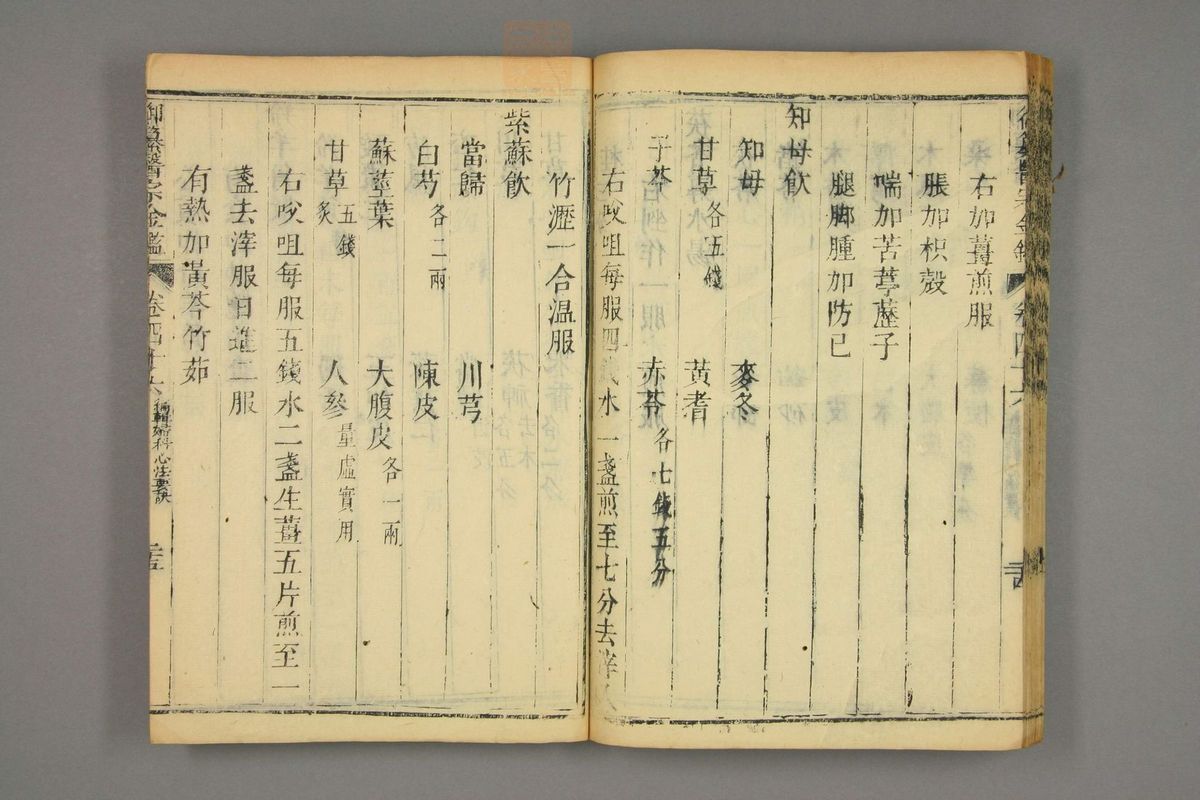 右加薑煎服
脹加枳殼
喘加苦葶藶子
腿脚腫加防已
知母飲
知母　麥冬
甘草各五錢　黃耆
子芩　赤苓各七錢五分
右㕮咀每服四錢水一盞煎至七分去滓入
竹瀝一合温服
紫蘇飲
當歸　川芎
白芍各二兩　陳皮
蘇莖葉　大腹皮各一兩
甘草炙五錢　人參量虛實用
右㕮咀每服五錢水二盞生薑五片煎至一
盞去滓服日進二服
有熱加黃芩竹茹
御纂醫宗金鑑　卷四十六　編輯婦科心法要訣